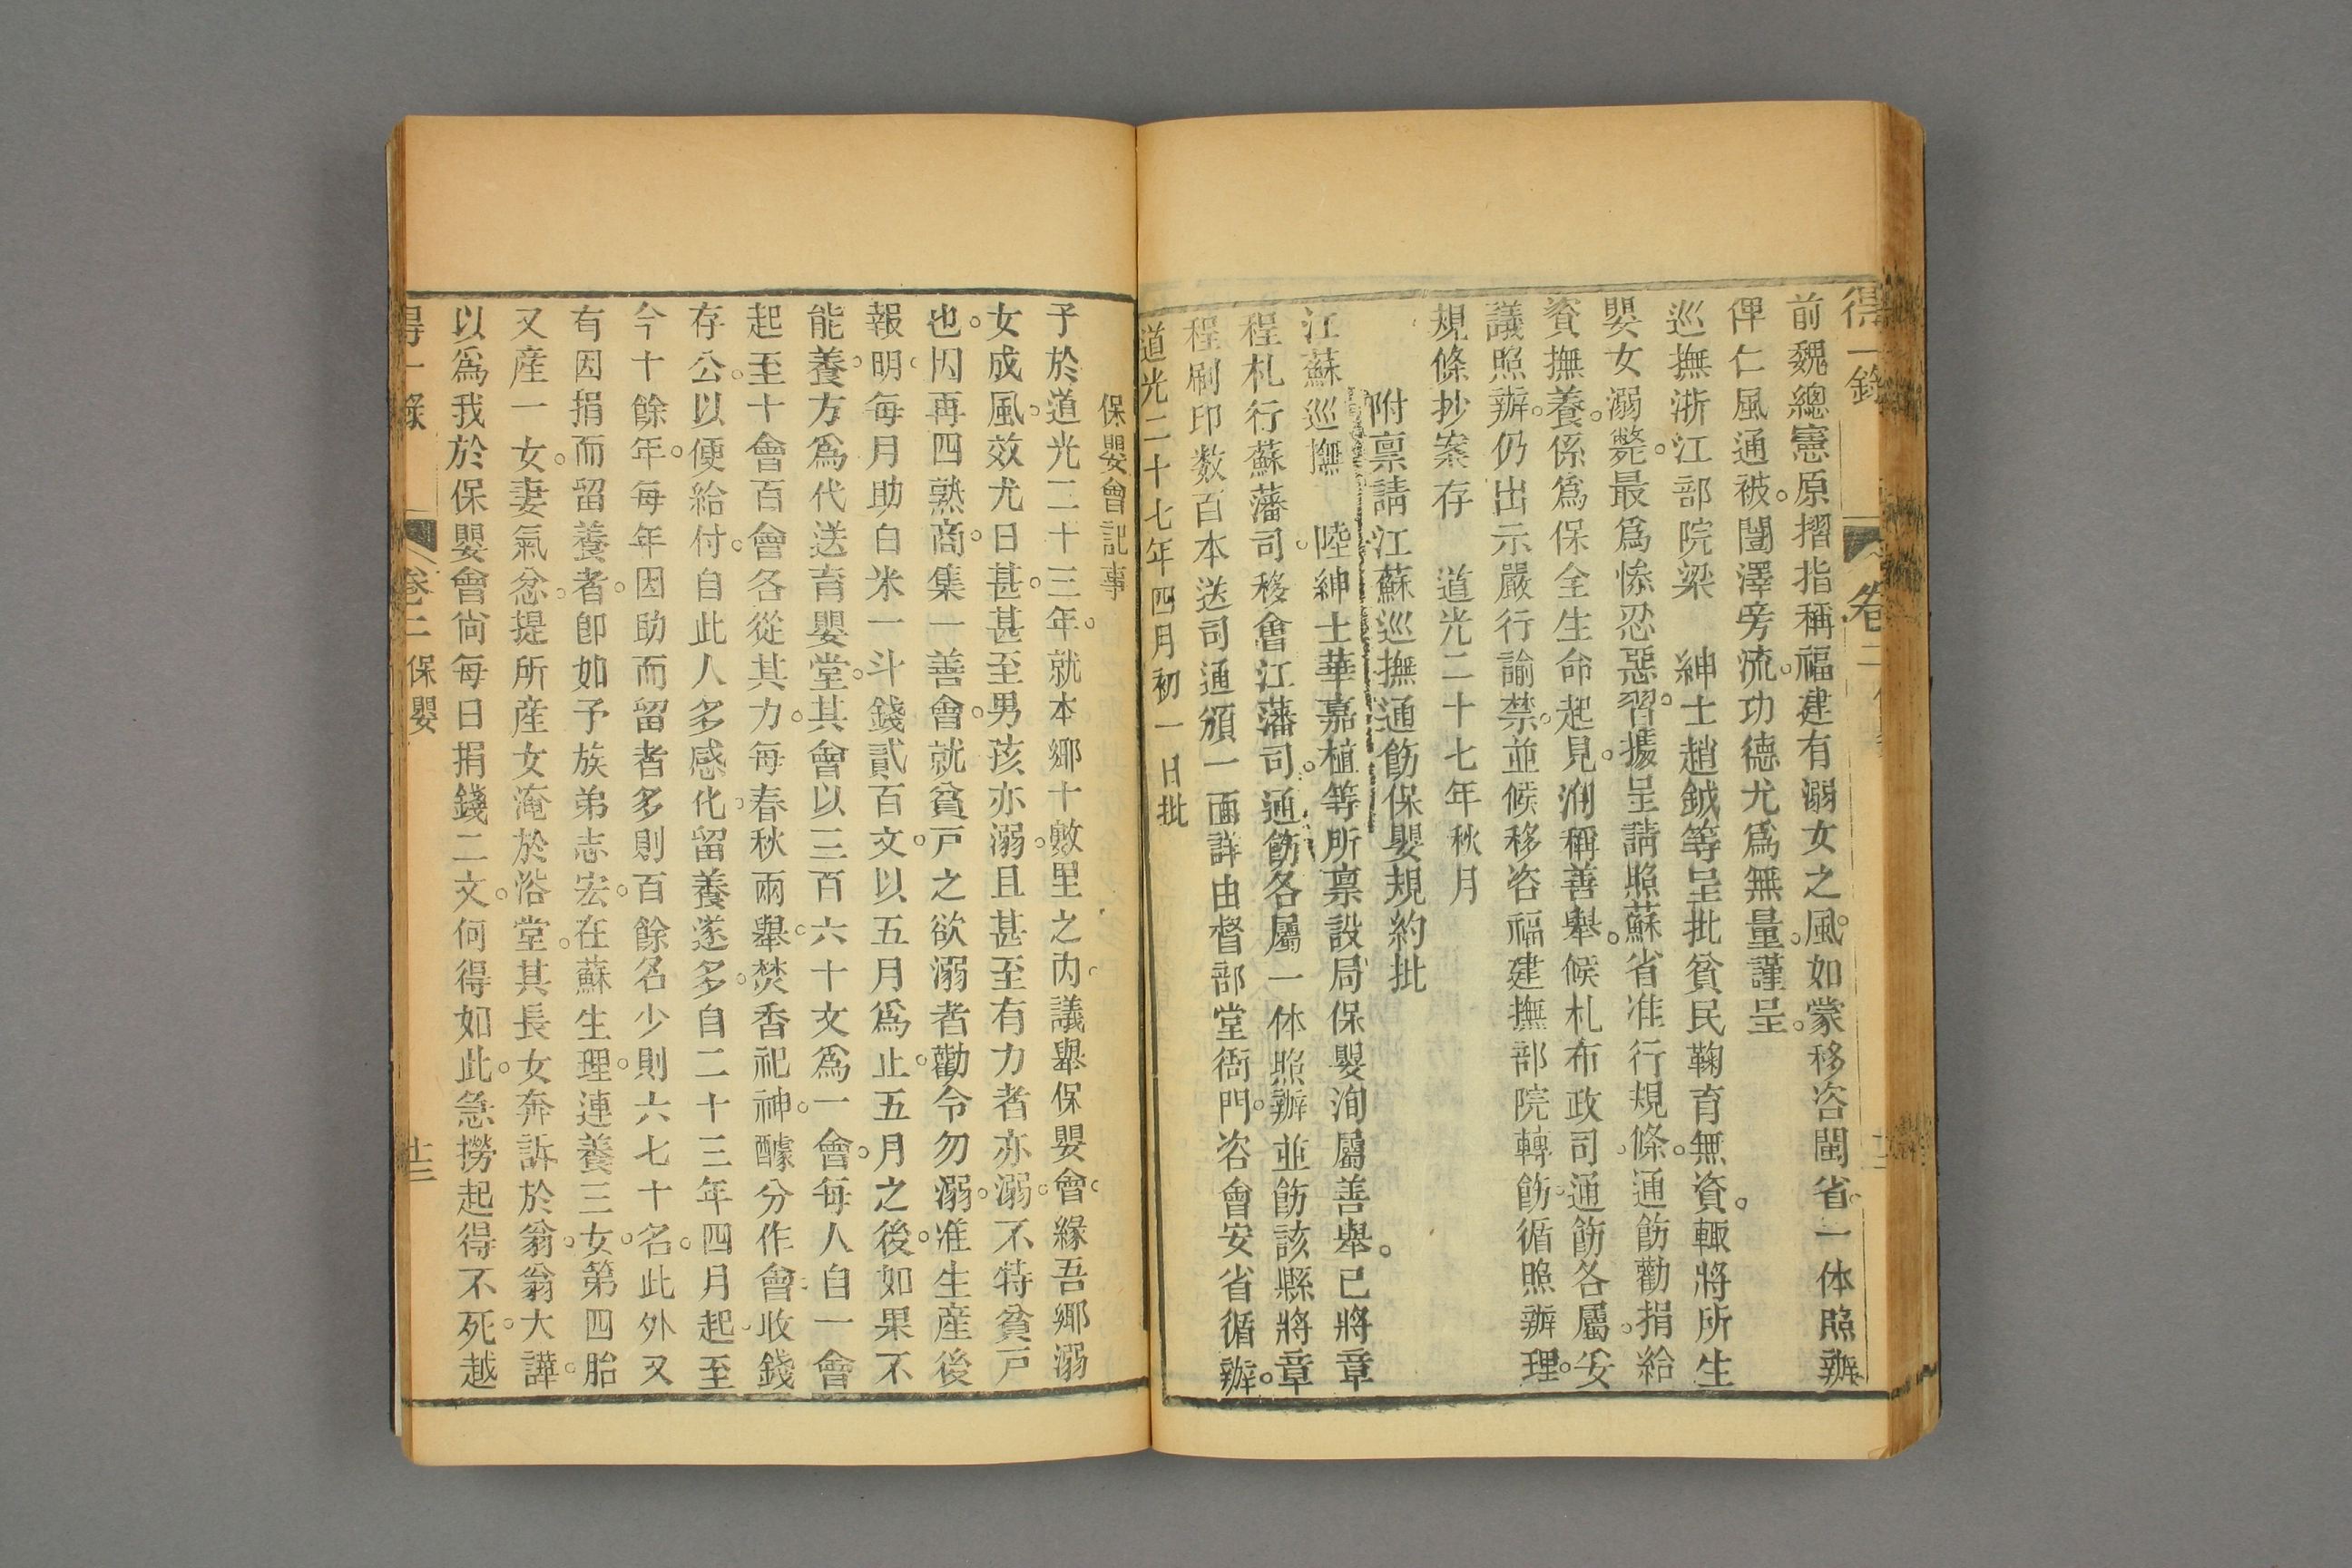 得一錄 卷二
前魏總憲原摺指稱福建有溺女之風。如蒙移咨閩省。一体照辦
俾仁風通被。闓澤旁流。功德尤爲無量。謹呈。
巡撫浙江部院梁 紳士趙鉞等呈批貧民鞠育無資。輒將所生
嬰女溺斃。最爲慘忍惡習。據呈請照蘇省准行規條。通飭勸捐給
資撫養。係爲保全生命起見。洵稱善舉。候札布政司通飭各屬。妥
議照辦。仍出示嚴行諭禁。並候移咨福建撫部院轉飭。循照辦理。
規條抄案存 道光二十七年秋月
附稟請江蘇巡撫通飭保嬰規約批
江蘇巡撫 陸紳士華嘉植等所稟設局保嬰洵屬善舉。已將章
程札行蘇藩司。移會江藩司。通飭各屬一体照辦並飭該縣將章
程刷印数百本送司通頒一面詳由督部堂衙門。咨會安省循辦。
道光二十七年四月初一日批
保嬰會記事
予於道光二十三年。就本鄉十數里之內。議舉保嬰會。緣吾鄉溺
女成風。效尤日甚。甚至男孩亦溺。且甚至有力者亦溺。不特貧戸
也。因再四熟商。集一善會。就貧戸之欲溺者勸令勿溺。准生産後
報明。每月助白米一斗錢貳百文。以五月爲止。五月之後。如果不
能養。方爲代送育嬰堂。其會以三百六十文爲一會。每人自一會
起至十會百會各從其力。每春秋兩舉。焚香祀神。醵分作會。收錢
存公。以便給付。自此人多感化。留養遂多。自二十三年四月起。至
今十餘年。每年因助而留者多則百餘名少則六七十名。此外又
有因捐而留養者。卽如予族弟志宏。在蘇生理。連養三女。第四胎
又産一女。妻氣忿。提所産女淹於浴堂。其長女奔訴於翁。翁大譁。
以爲我於保嬰會尙每日捐錢二文。何得如此。急撈起得不死。越
得一錄 卷二 保嬰 十三